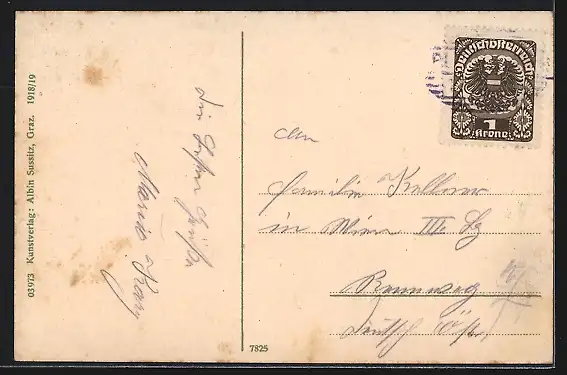 03973 Kunstverlag: Albin Sussitz, Graz. 1918/19
die besten Grüße
Deutschösterreich
1
Krone
An
Familie Kellner
in Wien III. Bz
Rennweg
Deutsch Öst.
7825